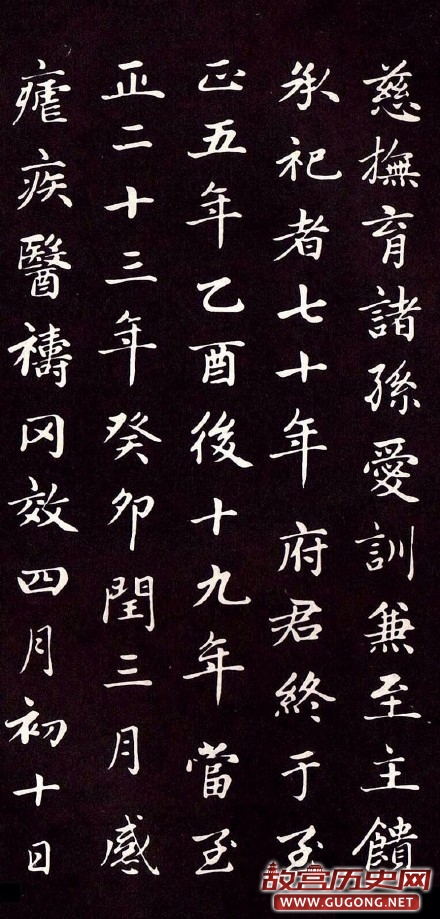 慈撫育諸孫愛訓兼至主饋
承祀者七十年府君終于至
正五年乙酉後十九年當至
正二十三年癸卯閏三月感
瘧疾醫禱罔效四月初十日
故宫历史网
WWW.GUGONG.NET